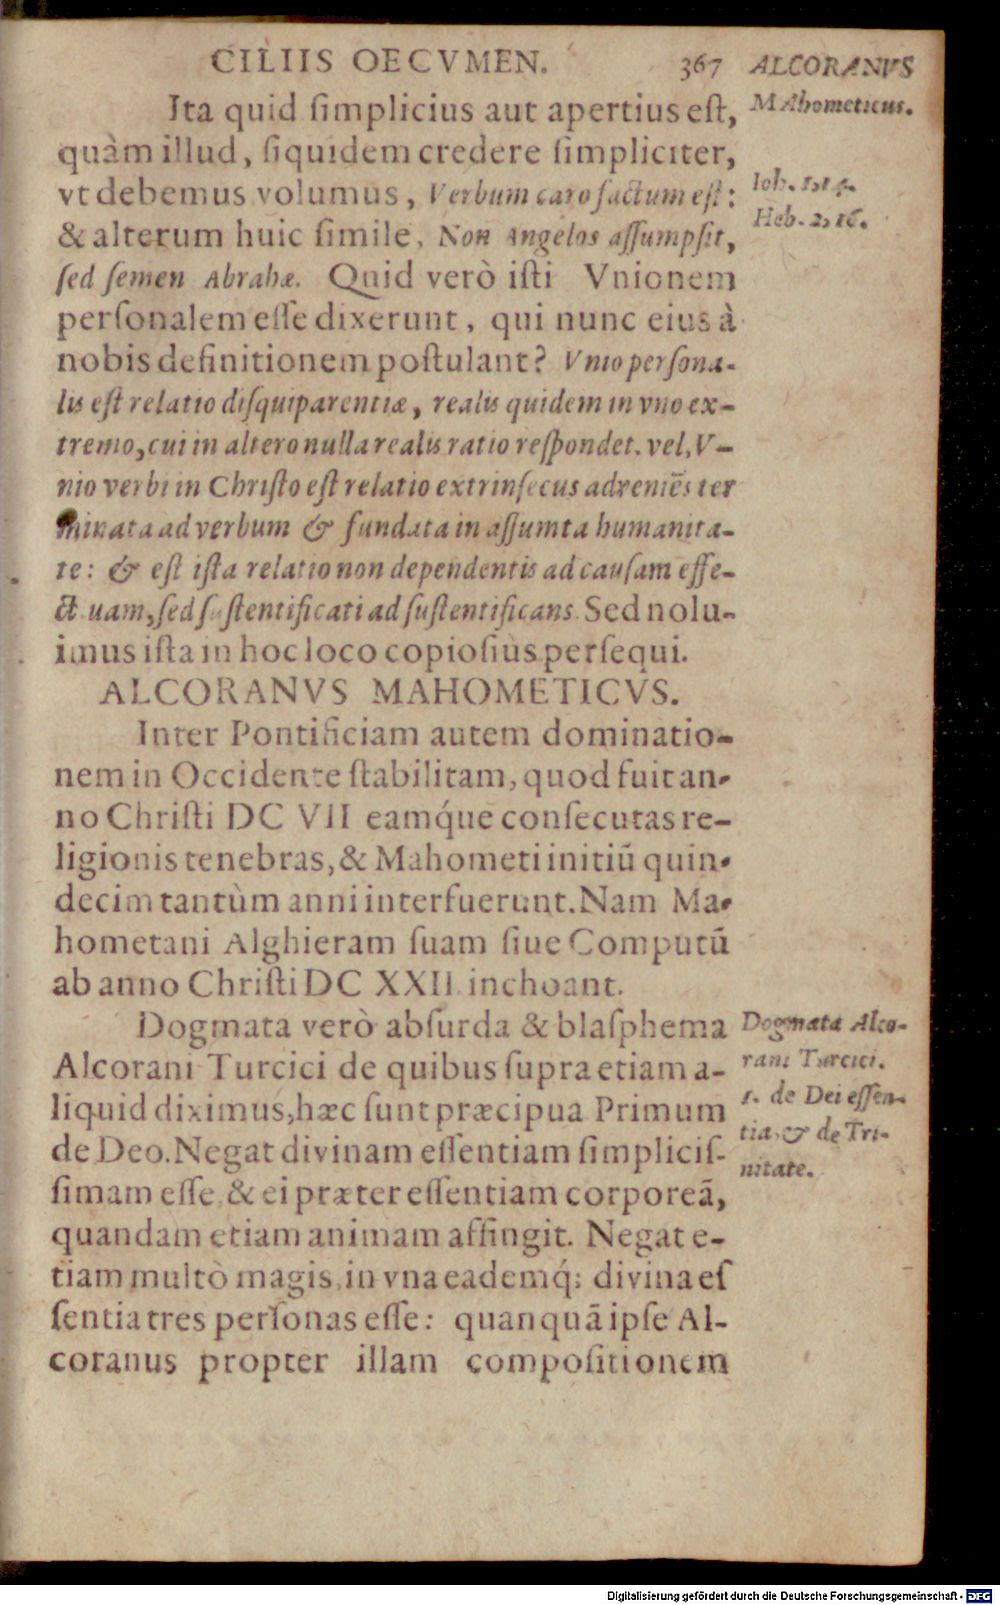 CILIIS OECVMEN. 367 ALCORANVS
MAhometicus.
Ita quid ſimplicius aut apertius eſt,
quàm illud, ſiquidem credere ſimpliciter,
vt debemus volumus, Verbum caro factum eſt:
Ioh. 1,14.
& alterum huic ſimile, Non Angelos aſſumpſit,
Heb. 2,16.
ſed ſemen Abrahæ. Quid verò iſti Vnionem
perſonalem eſſe dixerunt, qui nunc eius à
nobis definitionem poſtulant? Vnio perſona-
lis eſt relatio diſquiparentiæ, realis quidem in vno ex-
tremo, cui in altero nulla realis ratio reſpondet. vel, V-
nio verbi in Chriſto eſt relatio extrinſecus adveniẽs ter
minata ad verbum & fundata in aſſumta humanita-
te: & eſt iſta relatio non dependentis ad cauſam effe-
ctuam, ſed ſuſtentificati ad ſuſtentificans. Sed nolu-
imus iſta in hoc loco copioſiùs perſequi.
ALCORANVS MAHOMETICVS.
Inter Pontificiam autem dominatio-
nem in Occidente ſtabilitam, quod fuit an-
no Chriſti DC VII eamq́ue conſecutas re-
ligionis tenebras, & Mahometi initiũ quin-
decim tantùm anni interfuerunt. Nam Ma-
hometani Alghieram ſuam ſiue Computũ
ab anno Chriſti DC XXII. inchoant.
Dogmata verò abſurda & blaſphema
Alcorani Turcici de quibus ſupra etiam a-
liquid diximus, hæc ſunt præcipua Primum
de Deo. Negat divinam eſſentiam ſimpliciſ-
ſimam eſſe, & ei præter eſſentiam corporeã,
quandam etiam animam affingit. Negat e-
tiam multò magis, in vna eademq́; divina eſ
ſentia tres perſonas eſſe: quanquã ipſe Al-
coranus propter illam compoſitionem
Dogmata Alco-
rani Turcici.
1. de Dei eſſen-
tia, & de Tri-
nitate.
Digitalisierung gefördert durch die Deutsche Forschungsgemeinschaft - DFG